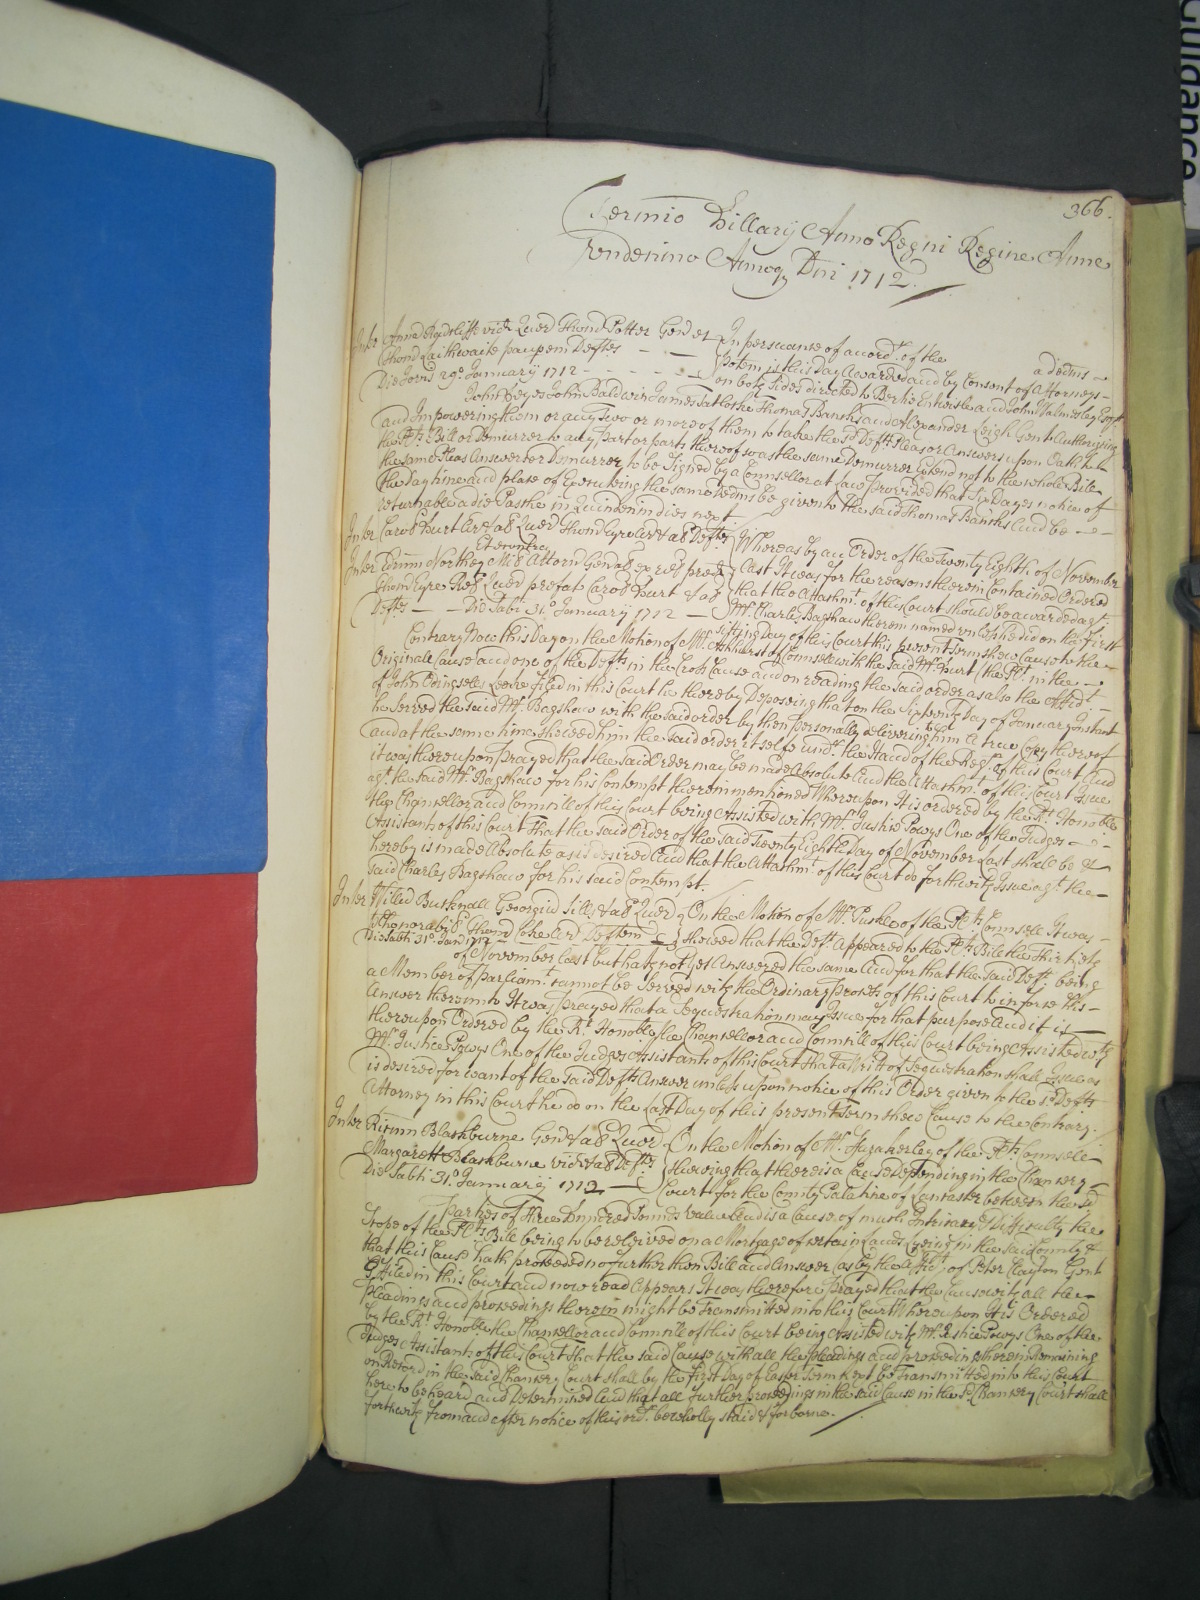 Guidance
366.
Termio Hillary Anno Regni Regine Anne
Undesimo Annoq Dni 1712.
Inter Anna Radcliffe vid Quer Thom Potter Gen et
Thom Laithwaite pauperem Deftes
Die Jovis 29o January 1712
In persuance of an ord of the
potem is this Day Awarded and by Consent of Attorneys
on both sides directed to Bertie Entwisle and John Walmesley Esqrs
John Keyes John Baldwin James Tatlocke Thomas Banks and Alexander Leigh Gent Authorizing
and Impowering them or any two or more of them to take the sd Defts Pleas or Answers upon Oath to
the Plts Bill or Demurrer to any part or parts thereof so as the same Demurrer Extend not to the whole Bill
the same Pleas Answer or Demurrer to be Signed by a Counsellor at Law provided that Six Dayes notice of
the Day time and place of Executing the same be given to the said Thomas Banks And be
returnable a die Pasche in Quindecim dies next
Inter Carol Hurt Ar & al Quer Thom Eyre Ar & al Deftes
Et e contra
Inter Edrum Northey Mil Attorn Genal ex rel pred
Thom Eyre Quer prefat Carol Hurt & al
Deftes Die Sabti 31o January 1712
Whereas by an Order of the Twenty Eighth of November
Last It was for the reasons therein Contained Ordered
that the Attachmt of this Court should be awarded agt
Mr Charles Bagshaw therein named unless he did on the first
sitting Day of this Court this present Term shew Cause to the
Contrary Now this Day on the Motion of Mr Ashhurst of Counsel with the said Mr Hurt (the Plt in the
Originale Cause and one of the Defts in the Cross Cause and on reading the said order as also the Affidt
of John Odingsells Leeke filed in this Court he thereby Deposeing that on the Sixteenth Day of January Instant
he Served the said Mr Bagshaw with the said order by then personally delivering to him A true Copy thereof
and at the same time shewed him the said order itselfe undr the Hand of the Regr of this Court And
it was thereupon Prayed that the said Order may be made Absolute And the Attachmt of this Court Issue
agt the said Mr Bagshaw for his Contempt therein mentioned Whereupon It is ordered by the Rt Honoble
the Chancellor and Councill of this Court being Assisted with Mr Justice Powys One of the Judges
Assistants of this Court That the said Order of the said Twenty Eighth Day of November Last shall be &
hereby is made Absolute as is desired And that the Attachmt of this Court do forthwith Issue agt the
said Charles Bagshaw for his said Contempt.
Inter Willm Bucknall Georgiu Sills & al Quer
Honorabil Thom Coke Ar Deftem
Die Sabti 31o Jan 1712
On the Motion of Mr Puslte of the Plts Counsell It was
shewed that the Deft appeared to the Plts Bill the Thirtieth
of November last but hath not yet Answered the same And for that the said Deft being
a Member of Parliamt cannot be Served with the Ordinary process of this Court to inforce his
Answer thereunto It was prayed that a Sequestration may Issue for that purpose And it is
thereupon Ordered by the Rt Honoble the Chancellor and Councill of this Court being Assisted with
Mr Justice Powys One of the Judges Assistants of this Court that a Writt of Sequestration shall Issue as
is desired for want of the said Defts Answer unless upon notice of this Order given to the sd Defts
Attorney in this Court he do on the Last Day of this present Term shew Cause to the Contrary.
Inter Ricum Blackburne Gen & al Quer
Margarett Blackburne vid & al Deftes
Die Sabti 31o January 1712
On the Motion of Mr of the Plts Counsell
shewing that there is a Cause Depending in the Chancery
Court for the County Palatine of Lancaster between the sd
Parties of Three Hundred Pounds value And is a Cause of much Intricacy & Difficulty the
scope of the Plts Bill being to be releived on a Mortgage of certain Lands lyeing in the said County &
that this Cause hath proceeded no further then Bill and Answer (as by the Affidt of Peter Clayton Gent
Filed in this Court and now read Appears It was therefore prayed that the Cause with all the
pleadings and proceedings therein might be Transmitted into this Court Whereupon It is Ordered
by the Rt Honoble the Chancellor and Councill of this Court being Assisted with Mr Justice Powys One of the
Judges Assistants of this Court that the said Cause with all the pleadings and proceedings therein Remaining
on Record in the said Chancery Court shall by the First Day of Easter Term next be Transmitted into this Court
here to be heard and Determined And that all further proceedings in the said Cause in the sd Chancery Court shall
forthwith from and after notice of this ordr be wholly staid & forborne.